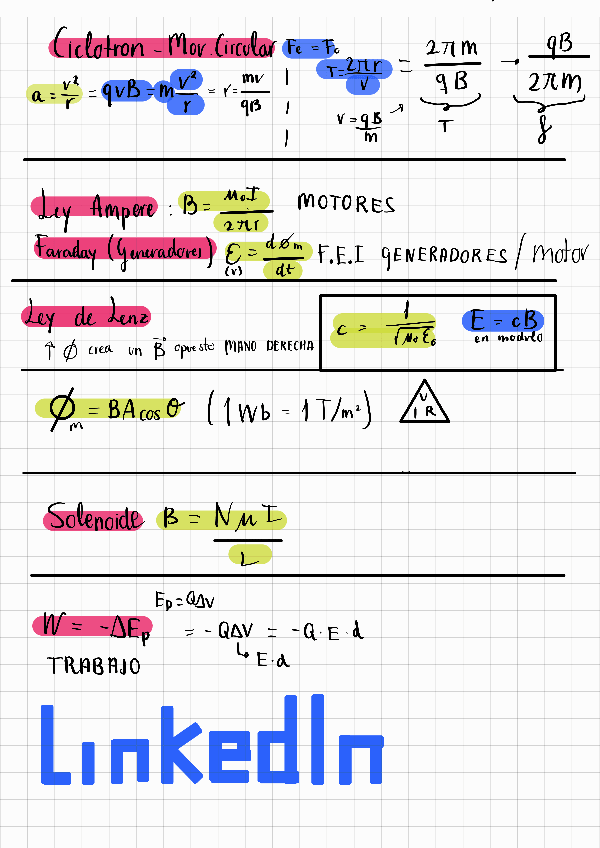 Ciclotron - Mov. Circular Fc = Fc
a = v²/r = qvB = m v²/r = r = mv/qB
T = 2πr/v = 2πm/qB → qB/2πm
v = qB/m T f
Ley Ampere : B = μ₀I/2πr MOTORES
Faraday (Generadores) ε = dϕm/dt F.E.I GENERADORES / motor
(v)
Ley de Lenz
↑ ϕ crea un B⃗ opuesto MANO DERECHA
c = 1/√μ₀ε₀ E = cB
en modulo
ϕm = BA cos θ (1 Wb = 1 T/m²) V I R
Solenoide B = NμI/L
Ep = QΔV
W = -ΔEp = -QΔV = -Q·E·d
↳ E·d
TRABAJO
LinkedIn